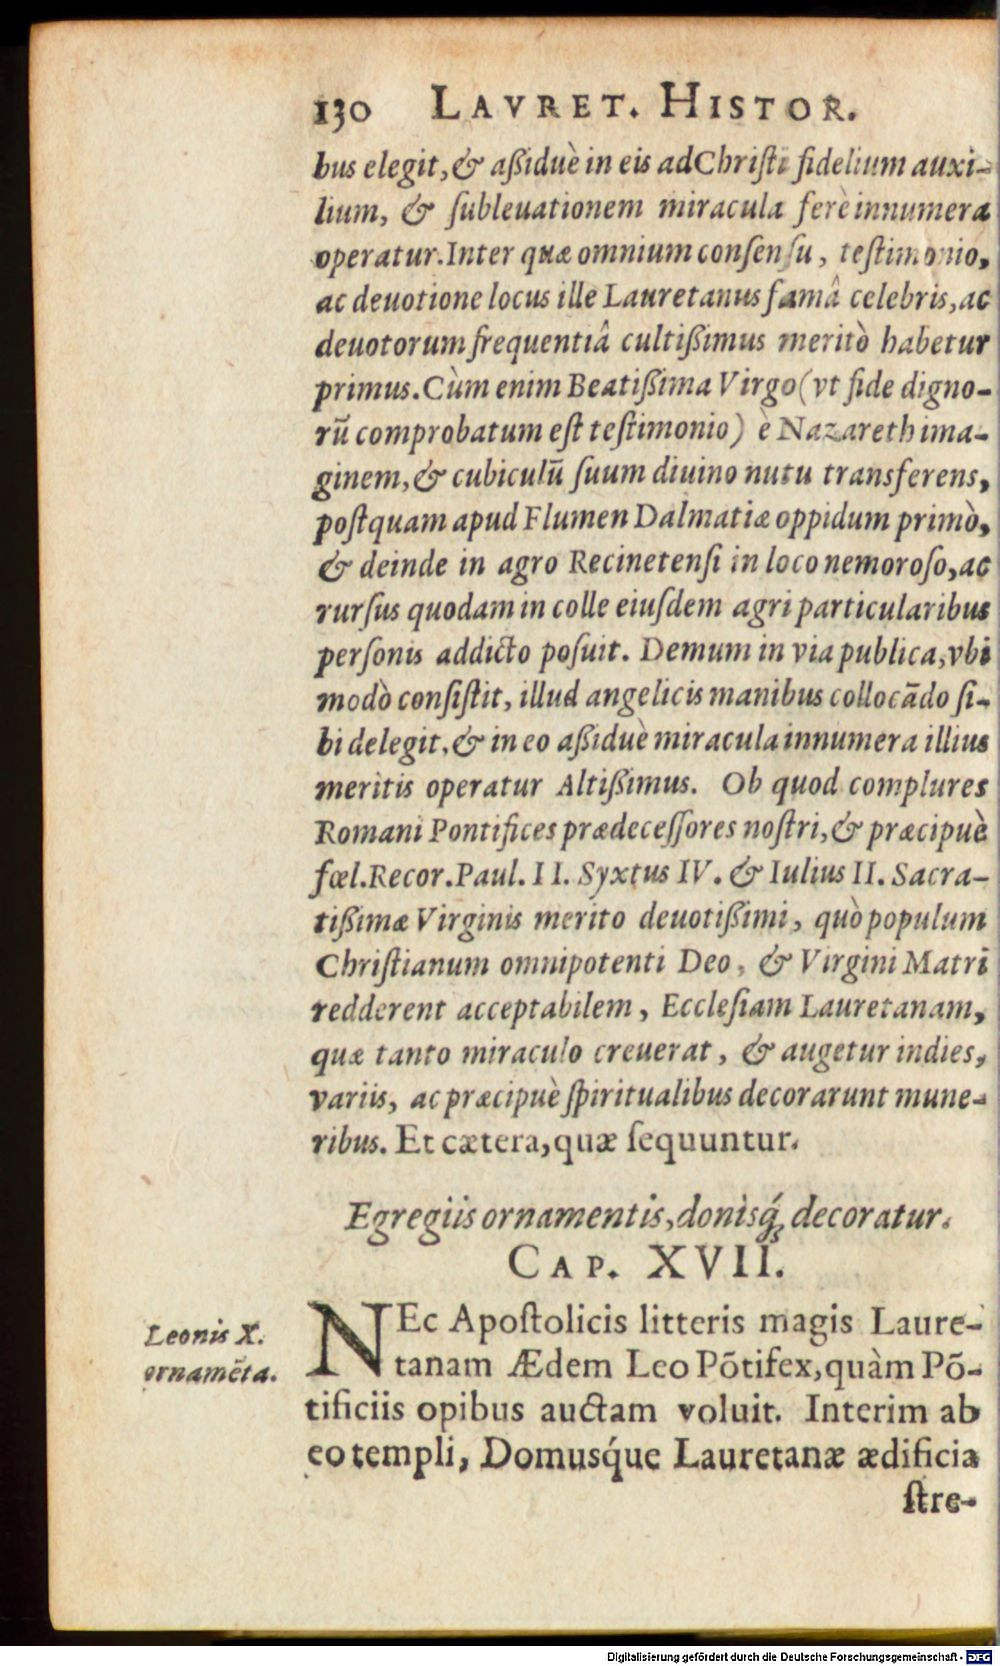 130 LAVRET. HISTOR.
bus elegit, & aßiduè in eis ad Christi fidelium auxi-
lium, & ſubleuationem miracula ferè innumera
operatur. Inter quæ omnium conſenſu, teſtimonio,
ac deuotione locus ille Lauretanus famâ celebris, ac
deuotorum frequentiâ cultißimus meritò habetur
primus. Cùm enim Beatißima Virgo (vt fide digno-
rū comprobatum eſt teſtimonio) è Nazareth ima-
ginem, & cubiculū ſuum diuino nutu transferens,
poſtquam apud Flumen Dalmatiæ oppidum primò,
& deinde in agro Recinetenſi in loco nemoroſo, ac
rurſus quodam in colle eiuſdem agri particularibus
perſonis addicto poſuit. Demum in via publica, vbi
modò conſiſtit, illud angelicis manibus collocādo ſi-
bi delegit, & in eo aßiduè miracula innumera illius
meritis operatur Altißimus. Ob quod complures
Romani Pontifices prædeceſſores noſtri, & præcipuè
fœl. Recor. Paul. II. Syxtus IV. & Iulius II. Sacra-
tißimæ Virginis merito deuotißimi, quò populum
Chriſtianum omnipotenti Deo, & Virgini Matri
redderent acceptabilem, Eccleſiam Lauretanam,
quæ tanto miraculo creuerat, & augetur indies,
variis, ac præcipuè ſpiritualibus decorarunt mune-
ribus. Et cætera, quæ ſequuntur.
Egregiis ornamentis, donisq́; decoratur.
CAP. XVII.
Leonis X.
ornamēta.
NEc Apoſtolicis litteris magis Laure-
tanam Ædem Leo Pōtifex, quàm Pō-
tificiis opibus auctam voluit. Interim ab
eo templi, Domusq́ue Lauretanæ ædificia
ſtre-
Digitalisierung gefördert durch die Deutsche Forschungsgemeinschaft - DFG